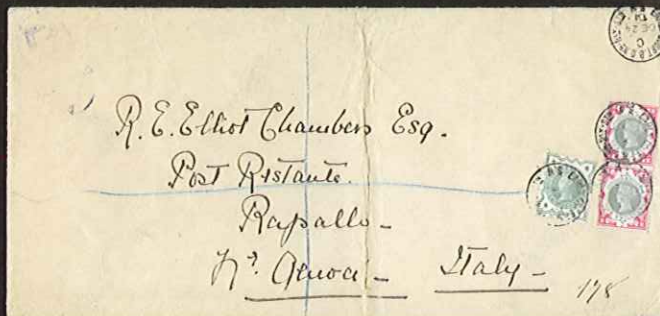 R. E. Elliot Chambers Esq.
Post Ristante.
Rapallo -
Nr. Genoa - Italy -
178